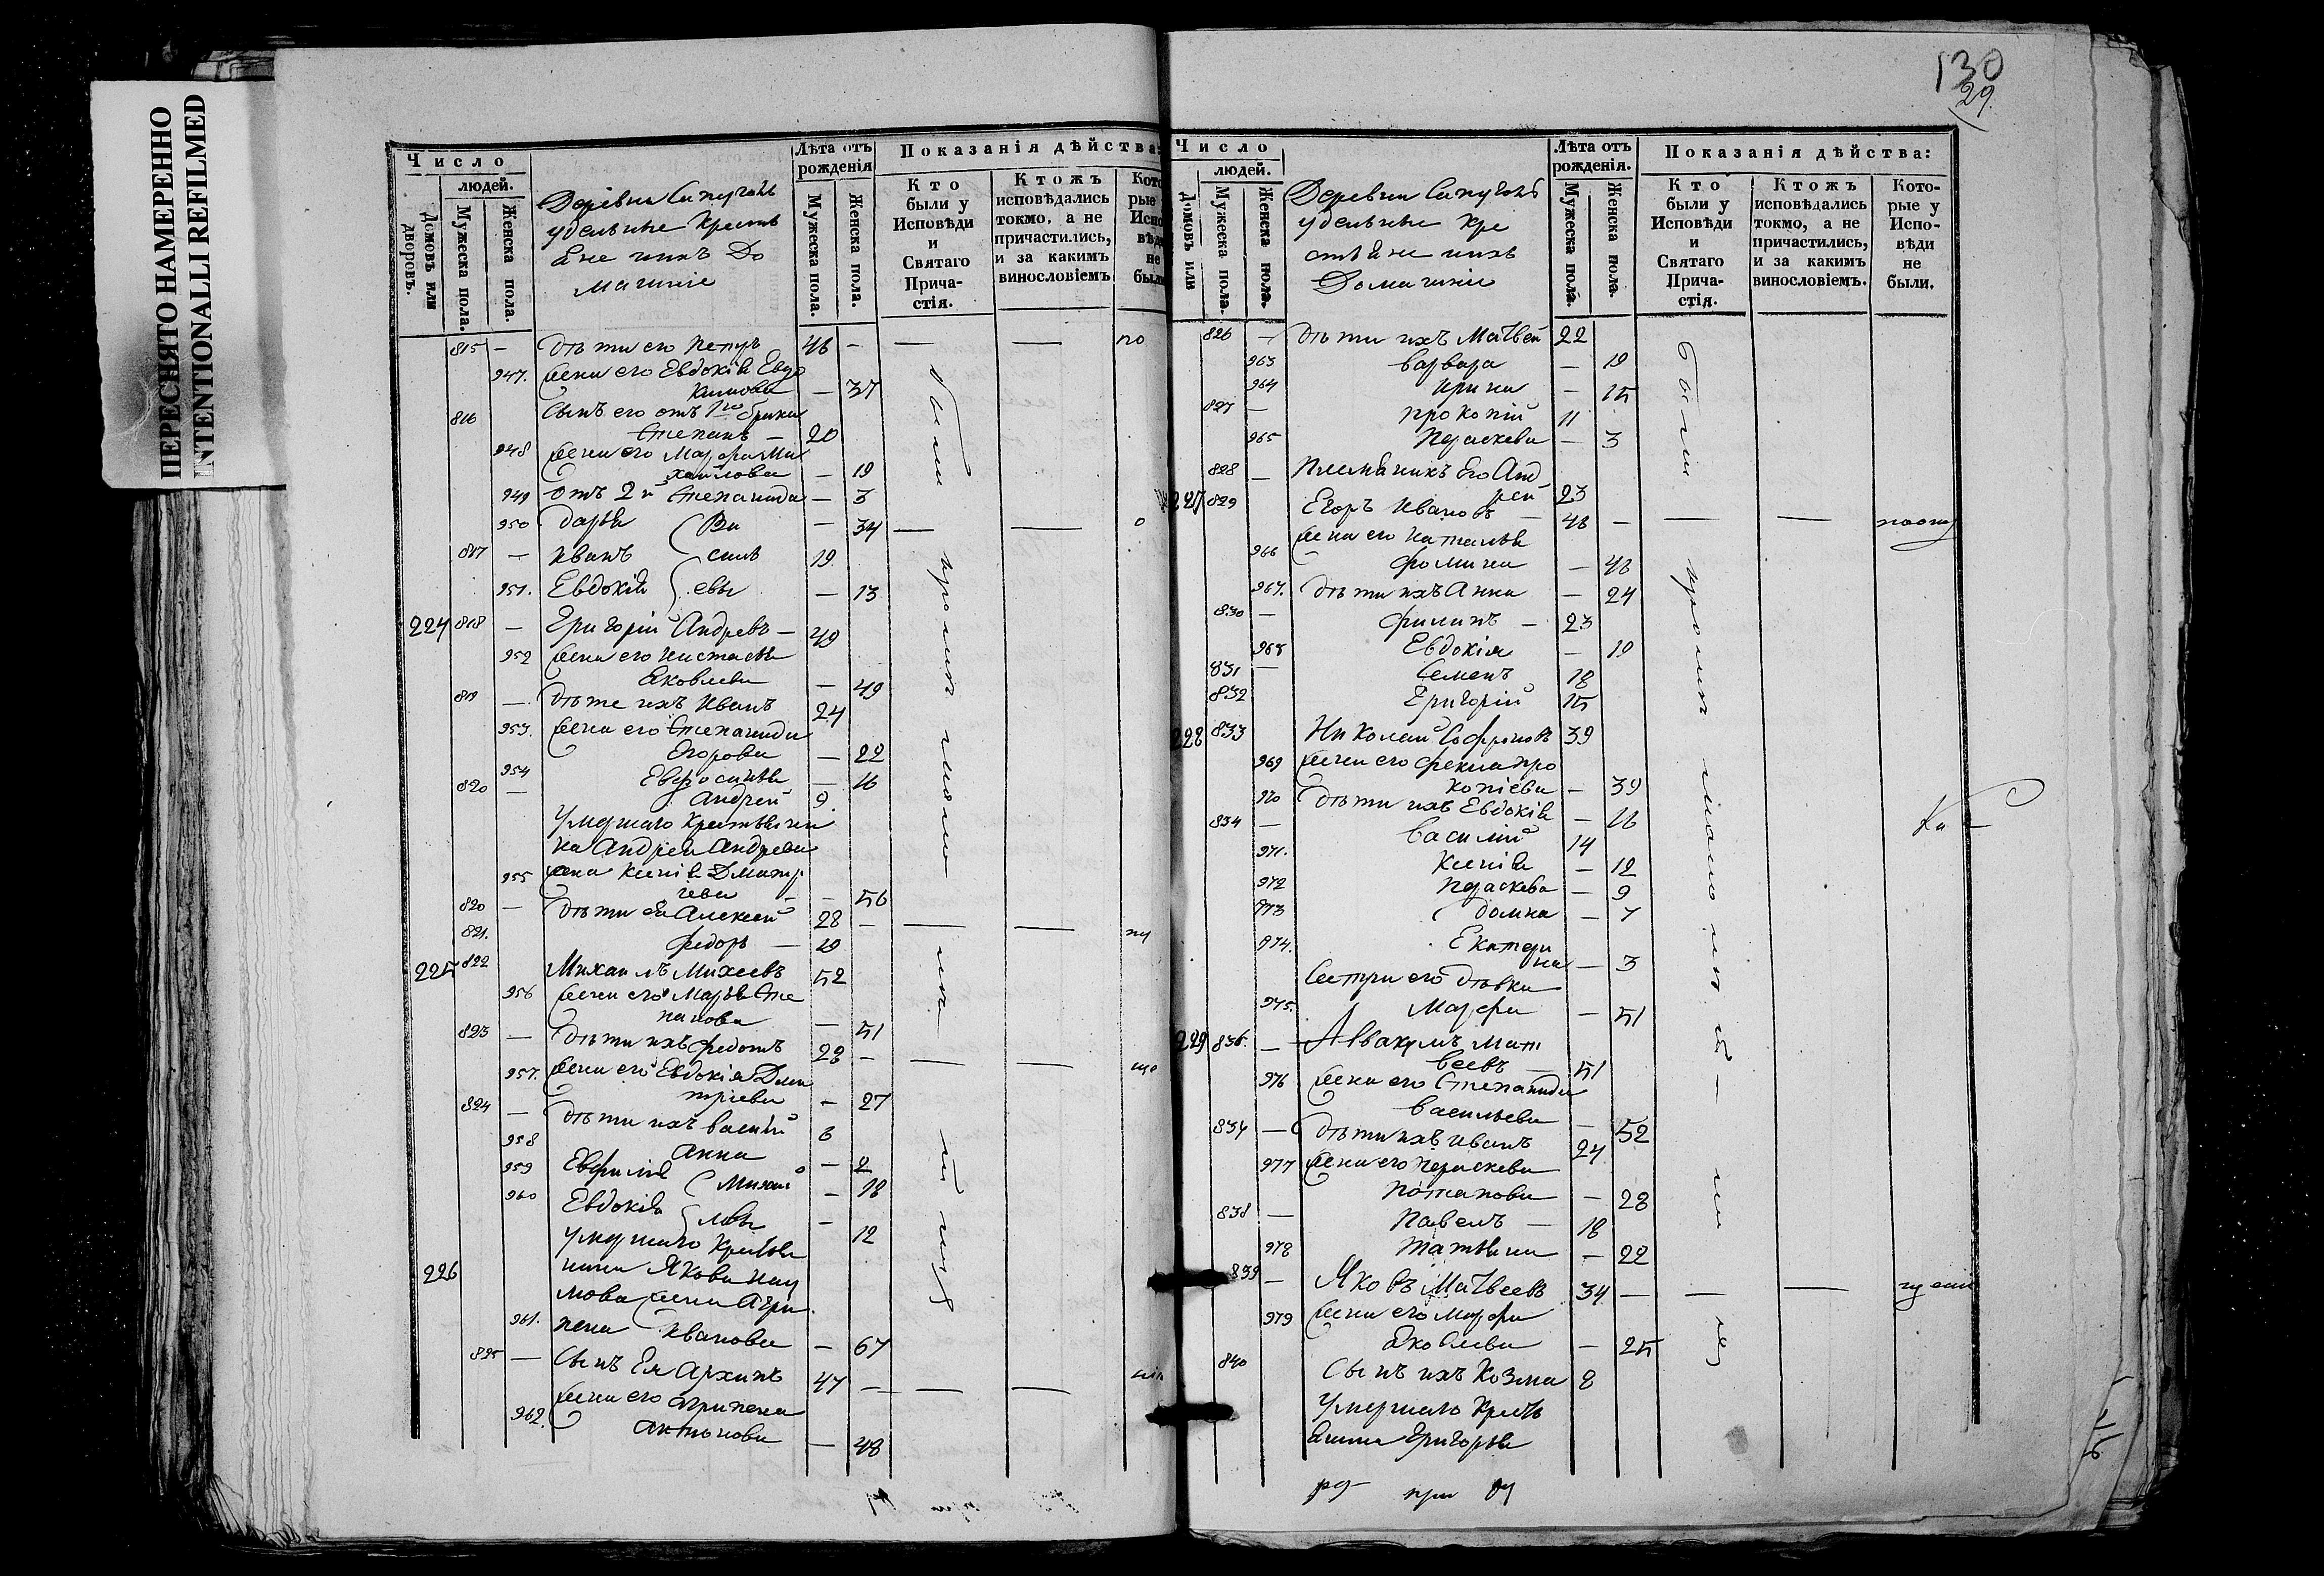 ПЕРЕСНЯТО НАМЕРЕННО
INTENTIONALLI REFILMED
Число
людей.
Домовъ или дворовъ.
Мужеска пола.
Женска пола.
Деревни
удельные Кресть
яне ихъ До
машніе
Лѣта отъ рожденія
Мужеска пола.
Женска пола.
Показанія дѣйства:
Кто были у Исповѣди и Святаго Прича-стія.
Ктожъ исповѣдались токмо, а не причастились, и за какимъ винословіемъ
815 — дѣти его Петръ 46 —
947. жена его Евдокія Евдо
кимова — 37
816 Сынъ его отъ 1го брака
Степанъ — 20
948 жена его Марфа Ми
хайлова — 19
949 отъ 2й Степанида — 3
950 Дарья — 34
817 — Иванъ 19
951. Евдокія — 13
224 818 — Григорій Андревъ — 49
952 жена его Настасья
Яковлева — 49
819 — дѣти ихъ Иванъ 24
953. жена его Степанида
Егорова — 22
954 Евфросинья — 16
820 — Андрей 9
умершаго Крестьяни
на Андрея Андреева
955 жена Ксенія Дмитр
іева — 56
820 — дѣти ея Алексей 28 —
821. Федоръ — 19
225 822 Михаилъ Михеевъ 52
956 жена его Марья Сте
панова — 51
823 — дѣти ихъ Федотъ 28 —
957. жена его Евдокія Дми
тріева — 27
824 — дѣти ихъ Василій 6
958 Анна — 2
959 Евфимія Михай — 18
960 Евдокія ловы — 12
умершаго Крестья
226 нина Якова Нау
мова жена Агри
961. пена Иванова — 67
825 — Сынъ Ея Архипъ 47 —
962. жена его Агрипена
Антонова — 48
130
29.
Число
людей.
Домовъ или
Мужеска пола.
Женска пола.
Деревни
удельные Кре
стьяне ихъ
Домашніе
Лѣта отъ рожденія.
Мужеска пола.
Женска пола.
Показанія дѣйства:
Кто были у Исповѣди и Святаго Прича-стія.
Ктожъ исповѣдались токмо, а не причастились, и за какимъ винословіемъ.
Кото-рые у Испо-вѣди не были.
826 — дѣти ихъ Матвей 22
963 Варвара — 19
964 Ирина — 15
827 — Прокопій 11
965 Праскева — 3
828 — Племяникъ Его Анд
рей 23
227 829 Егоръ Ивановъ — 46 —
966 жена его Наталья
Фомина — 46
967. дѣти ихъ Анна — 24
830 — Филипъ — 23
968 Евдокія — 19
831 — Семенъ 18
832 Григорій 15
228 833 Николай Софроновъ 39
969 жена его Фекла Про
копіева — 39
970 дѣти ихъ Евдокія — 16
834 — Василій 14
971. Ксенія — 12
972 Праскева — 9
973 Домна — 7
974. Екатери
на — 3
Сестра его дѣвка
975. Марфа — 51
229 836. — Аввакумъ Мат
веевъ — 51
976 жена его Степанида
Васильева — 52
837 — дѣти ихъ Иванъ 24
977 жена его Параскева
Потапова — 28
838 — Павелъ — 18
978 Татьяна — 22
839 — Яковъ Матвеевъ 34 —
979 жена его Марфа
Яковлева — 25
840 Сынъ ихъ Козма 8
Умершаго Кресть
янина Григорья